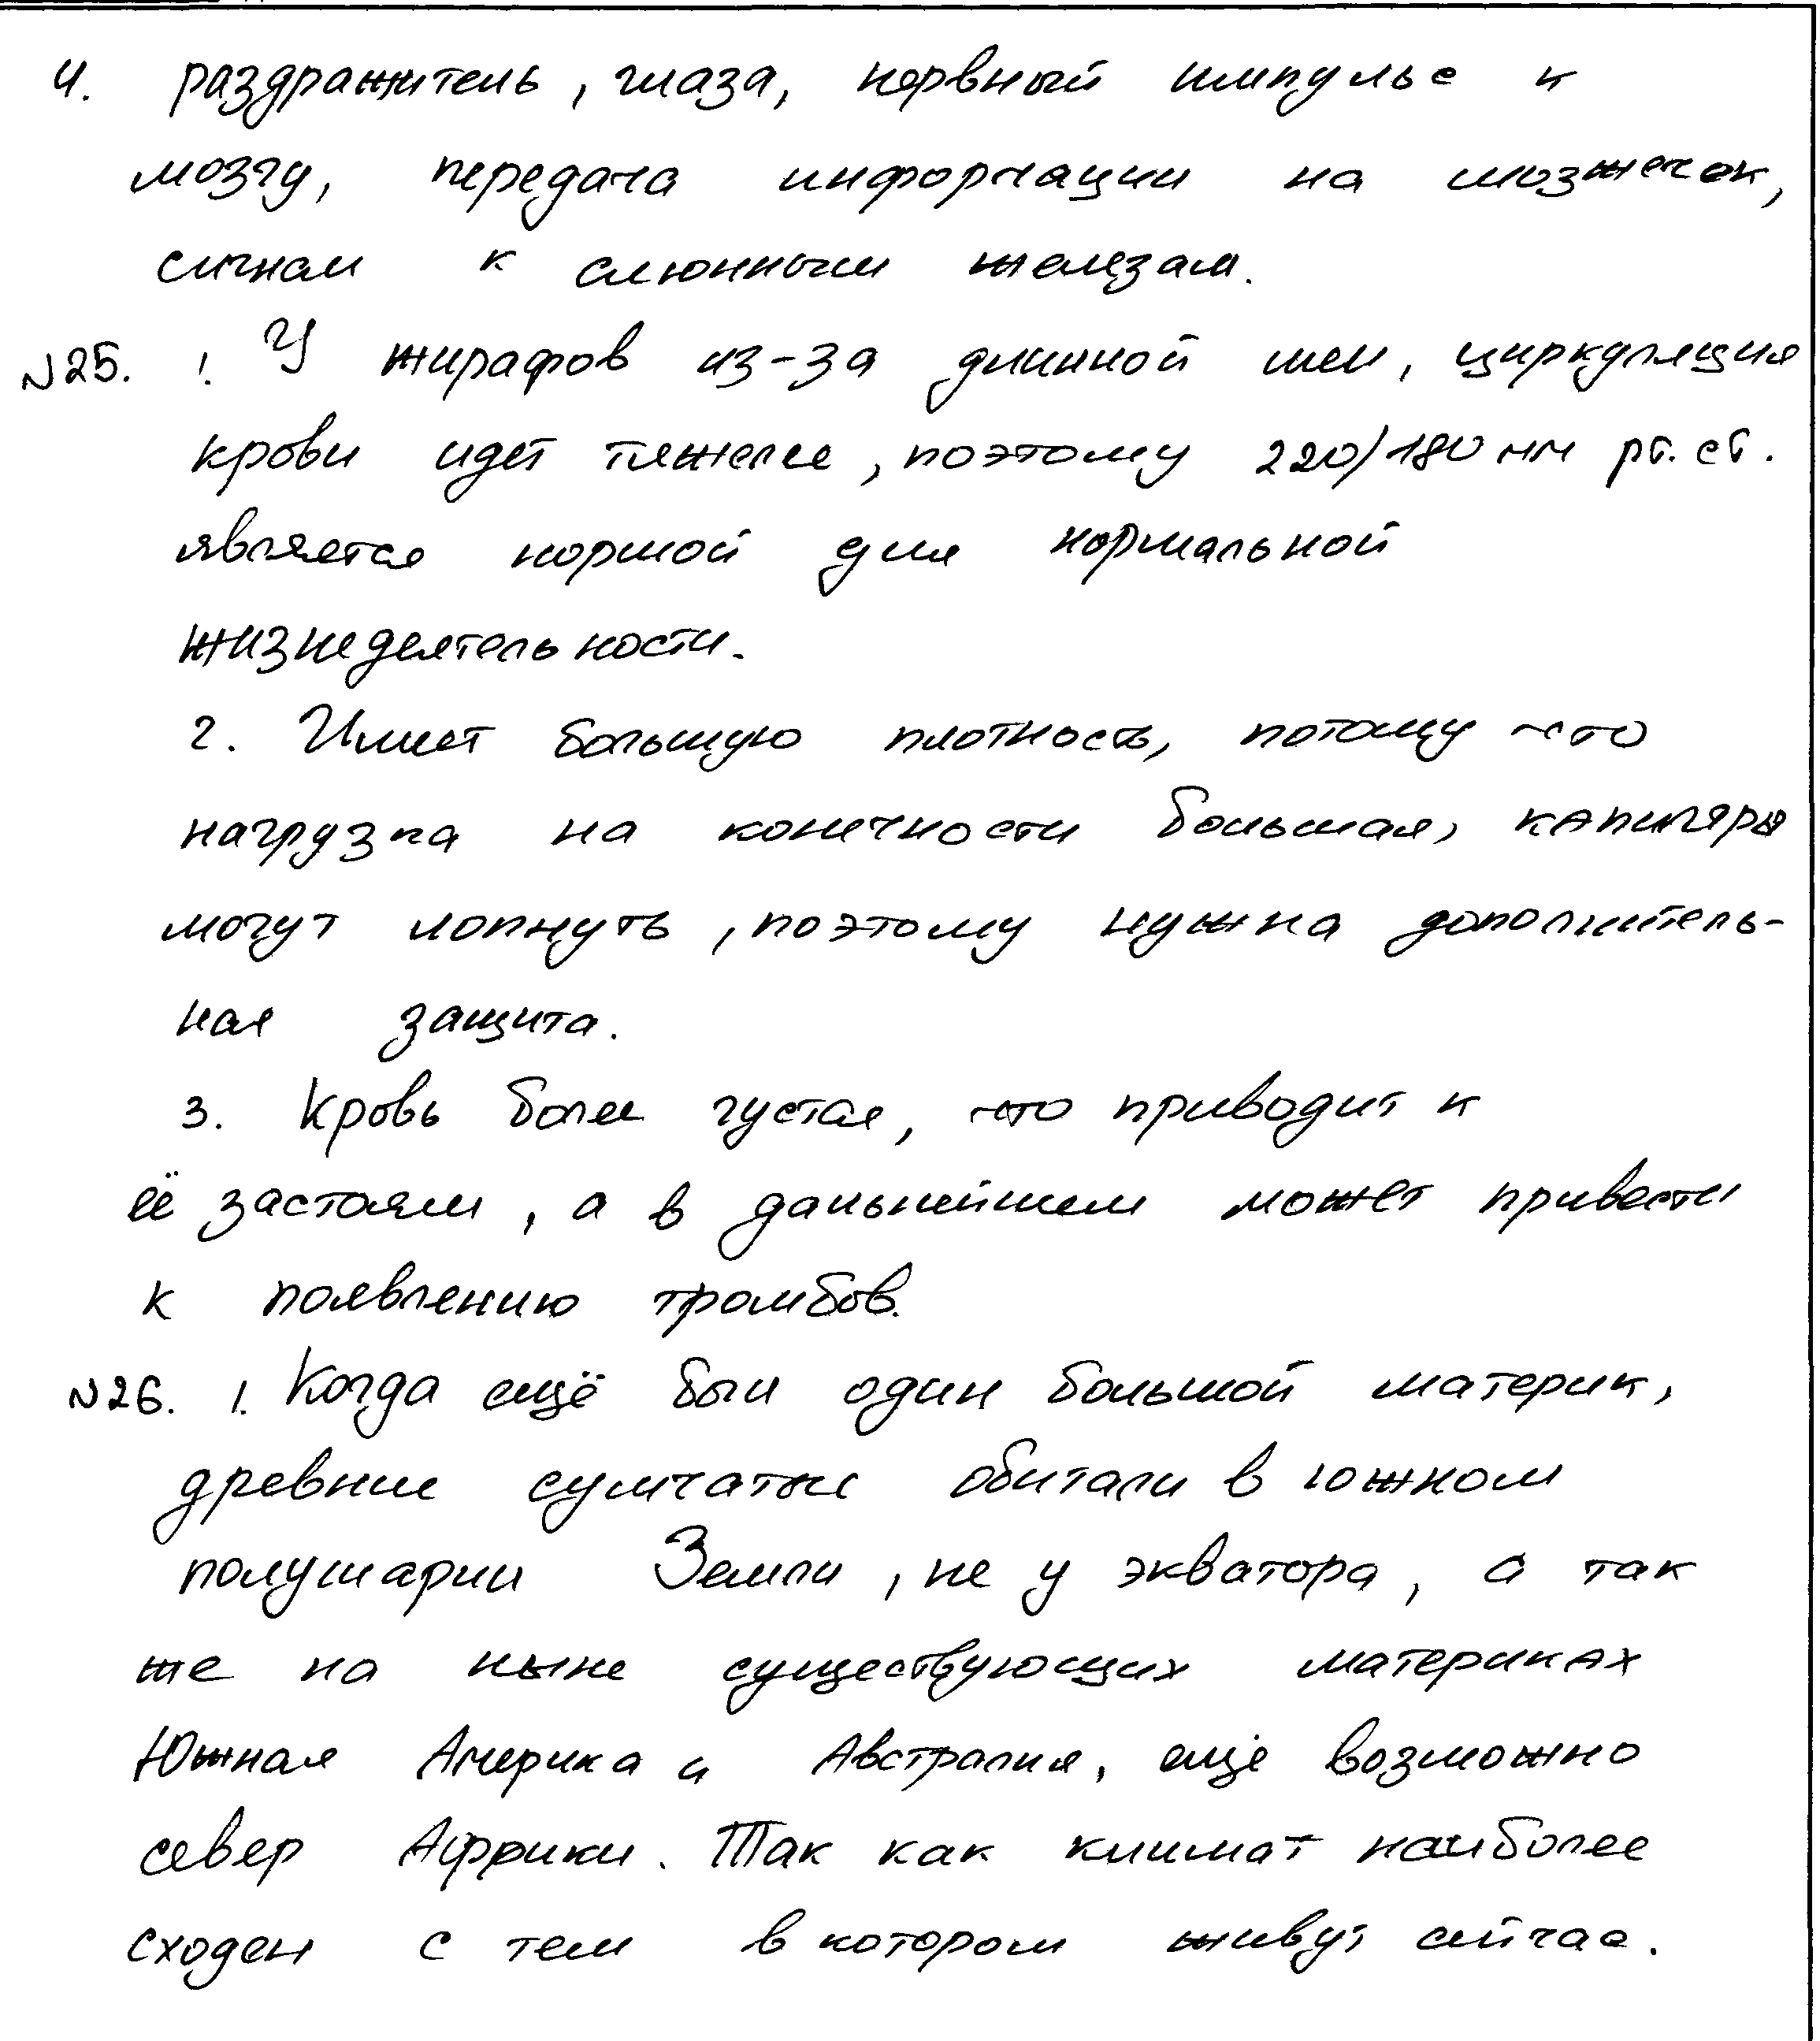 4. раздражитель, глаза, нервный импульс к
мозгу, передача информации на мозжечок,
сигнал к слюнным железам.
№25. 1. У жирафов из-за длинной шеи, циркуляция
крови идет тяжелее, поэтому 220/180 мм рт. ст.
является нормой для нормальной
жизнедеятельности.
2. Имеет большую плотность, потому что
нагрузка на конечности большая, капиляры
могут лопнуть, поэтому нужна дополнитель-
ная защита.
3. Кровь более густая, что приводит к
её застоям, а в дальнейшем может привести
к появлению тромбов.
№26. 1. Когда ещё был один большой материк,
древние сумчатые обитали в южном
полушарии Земли, не у экватора, а так
же на ныне существующих материках
Южная Америка и Австралия, ещё возможно
север Африки. Так как климат наиболее
сходен с тем в котором живут сейчас.